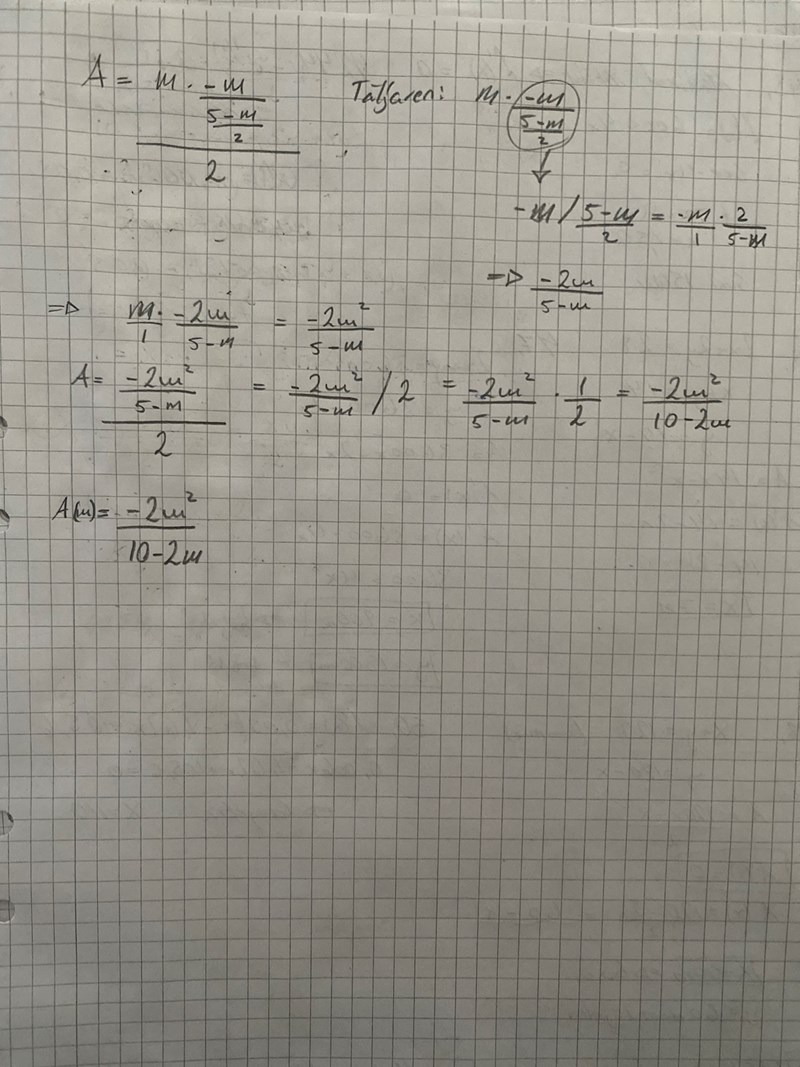 A = (m · (-m)/((5-m)/2))/2
Täljaren: m · (-m)/((5-m)/2)
-m / (5-m)/2 = -m/1 · 2/(5-m)
=> -2m/(5-m)
=> m/1 · -2m/(5-m) = -2m²/(5-m)
A = (-2m²/(5-m))/2 = -2m²/(5-m) / 2 = -2m²/(5-m) · 1/2 = -2m²/(10-2m)
A(m) = -2m²/(10-2m)